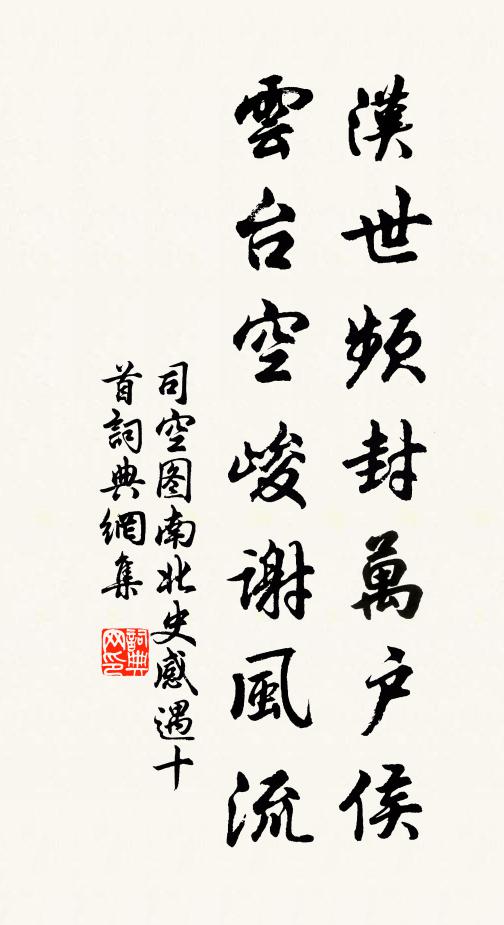 漢世頻封萬户侯
雲台空峻谢風流
司空图南北史感遇十
首詞典網集
詞典
网印